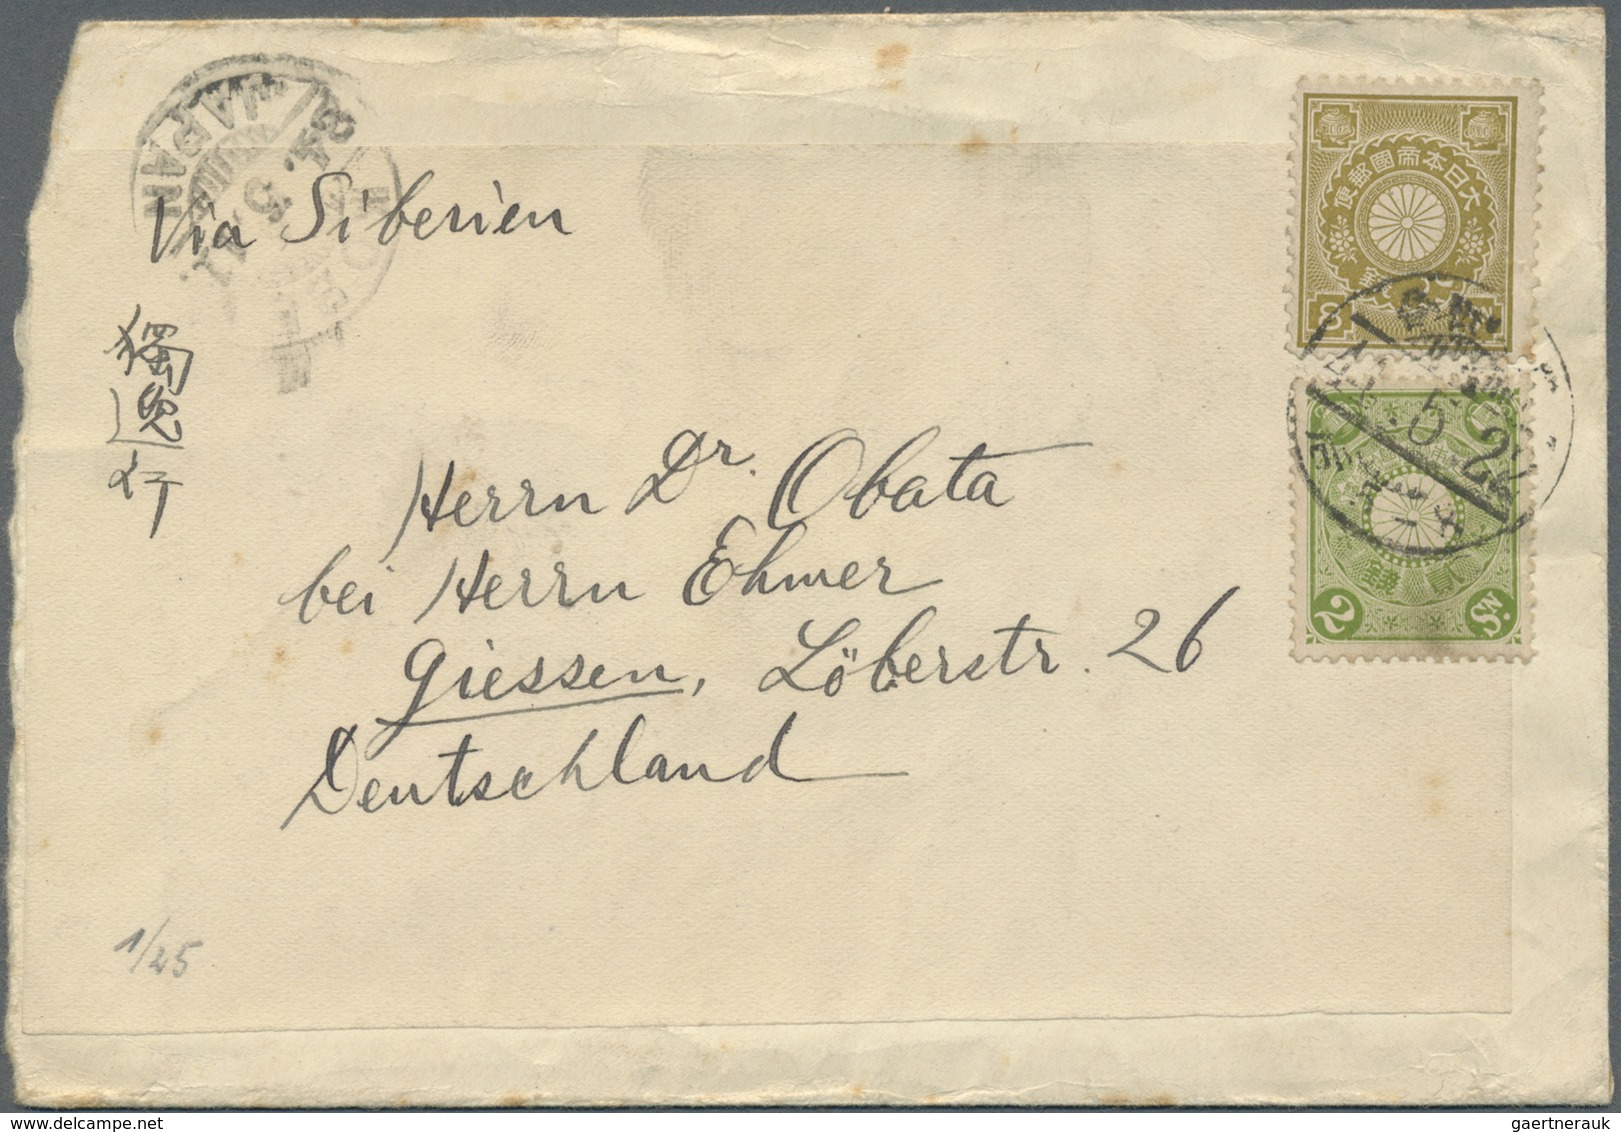 JAPAN
Via Siberien
獨逸行
Herrn Dr. Obata
bei Herrn Ehmer
Giessen, Löberstr. 26
Deutschland
1/25
大日本帝國郵便
8
2
Sn.
gaertnerauk